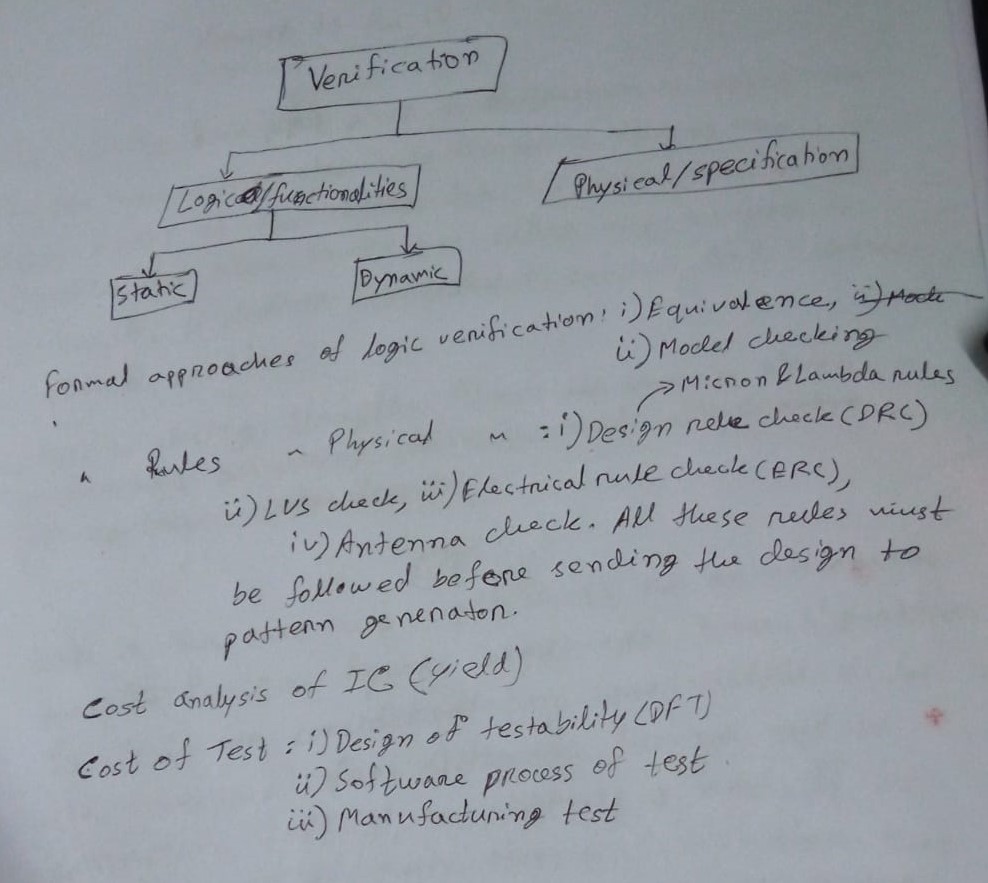 Verification
Logical/functionalities
Physical/specification
Static
Dynamic
Formal approaches of logic verification: i) Equivalence,
ii) Model checking
Micron & Lambda rules
" Rules " Physical " : i) Design rule check (DRC)
ii) LVS check, iii) Electrical rule check (ERC),
iv) Antenna check. All these rules must
be followed before sending the design to
pattern generator.
Cost analysis of IC (yield)
Cost of Test : i) Design of testability (DFT)
ii) Software process of test
iii) Manufacturing test